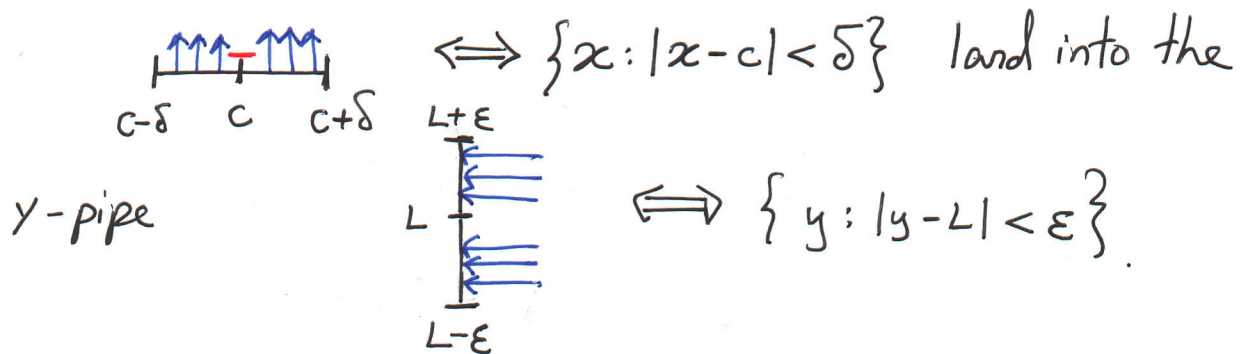 ⟺ {x : |x-c| < δ} land into the
c-δ c c+δ
L+ε
y-pipe L ⟺ { y : |y-L| < ε}.
L-ε